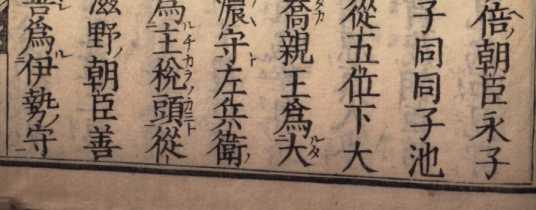 倍朝臣永子
子同同子池
從五位下大
喬親王爲大
濃守左兵衛
爲主稅頭從
滋野朝臣善
爲伊勢守